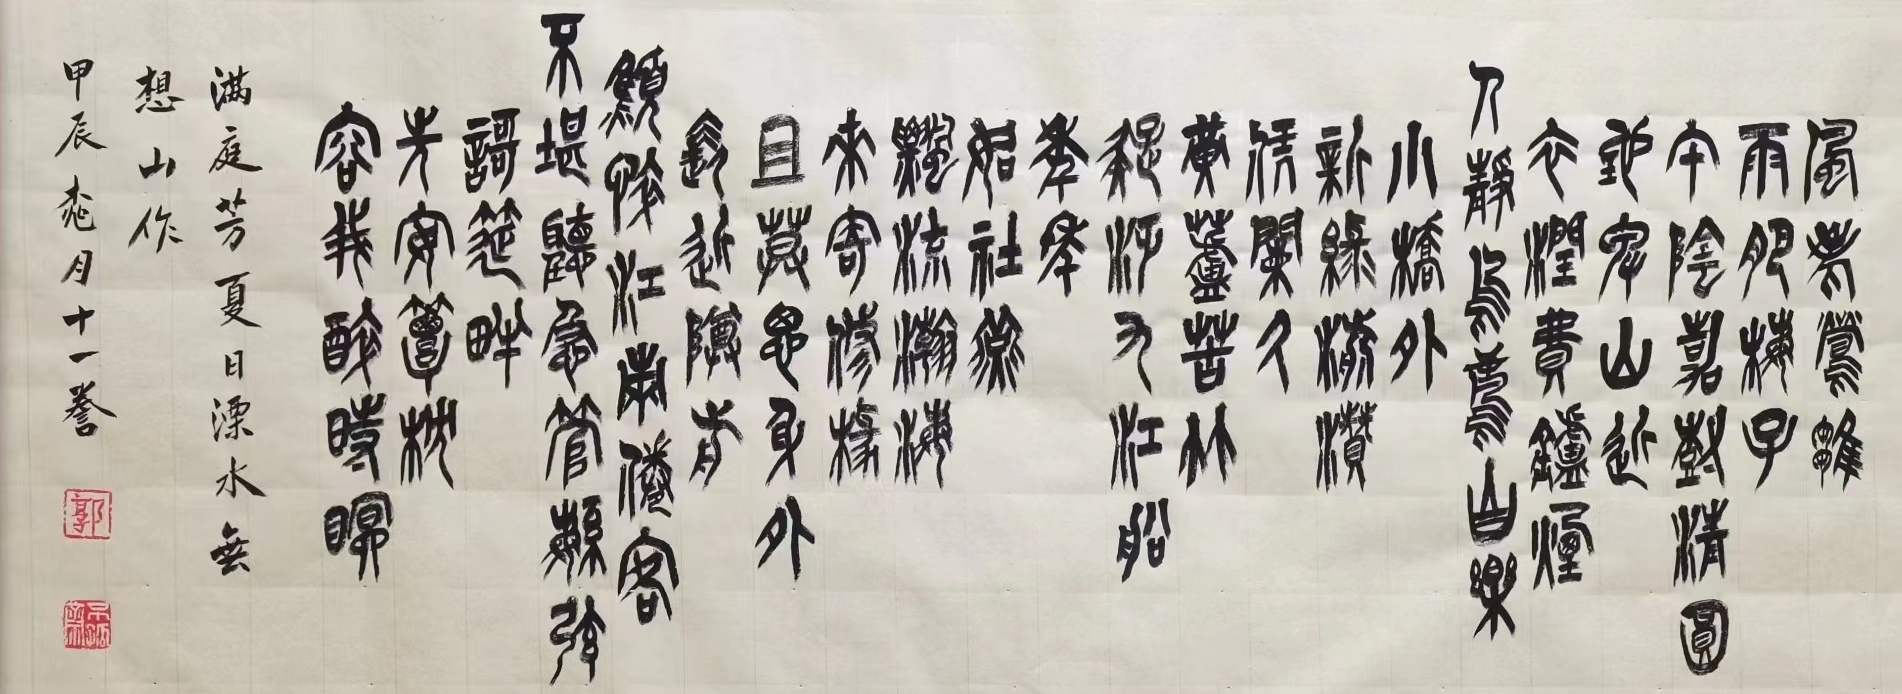 風老鶯雛
雨肥梅子
午陰嘉樹清圓
地卑山近
衣潤費鑪煙
人靜烏鳶自樂
小橋外
新綠濺濺
凭闌久
黃蘆苦竹
擬泛九江船
年年
如社燕
飄流瀚海
來寄修椽
且莫思身外
長近尊前
顦悴江南倦客
不堪聽急管繁弦
謌筵畔
先安簟枕
容我醉時眠
满庭芳夏日溧水無
想山作
甲辰桃月十一誊
郭